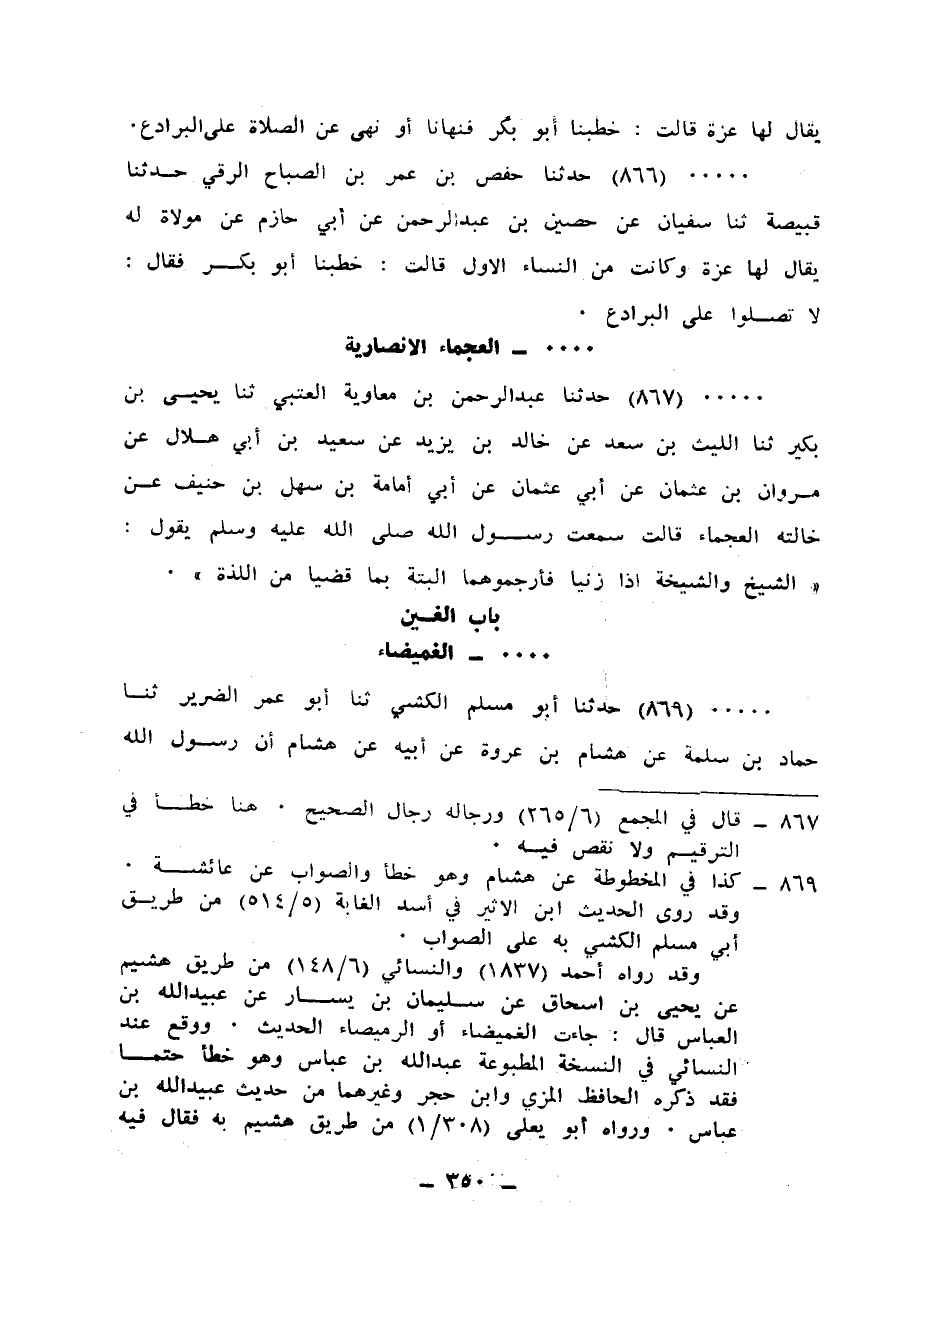 يقال لها عزة قالت : خطبنا أبو بكر فنهانا أو نهى عن الصلاة على البرادع .
٠٠٠٠٠ (٨٦٦) حدثنا حفص بن عمر بن الصباح الرقي حدثنا
قبيصة ثنا سفيان عن حصين بن عبدالرحمن عن أبي حازم عن مولاة له
يقال لها عزة وكانت من النساء الاول قالت : خطبنا أبو بكر فقال :
لا تصلوا على البرادع .
٠٠٠٠ ـ العجماء الانصارية
٠٠٠٠٠ (٨٦٧) حدثنا عبدالرحمن بن معاوية العتبي ثنا يحيى بن
بكير ثنا الليث بن سعد عن خالد بن يزيد عن سعيد بن أبي هلال عن
مروان بن عثمان عن أبي عثمان عن أبي أمامة بن سهل بن حنيف عن
خالته العجماء قالت سمعت رسول الله صلى الله عليه وسلم يقول :
« الشيخ والشيخة اذا زنيا فأرجموهما البتة بما قضيا من اللذة » .
باب الغين
٠٠٠٠ ـ الغميضاء
٠٠٠٠٠ (٨٦٩) حدثنا أبو مسلم الكشي ثنا أبو عمر الضرير ثنا
حماد بن سلمة عن هشام بن عروة عن أبيه عن هشام أن رسول الله
٨٦٧ ـ قال في المجمع (٢٦٥/٦) ورجاله رجال الصحيح . هنا خطأ في
الترقيم ولا نقص فيه .
٨٦٩ ـ كذا في المخطوطة عن هشام وهو خطأ والصواب عن عائشة .
وقد روى الحديث ابن الاثير في أسد الغابة (٥١٤/٥) من طريق
أبي مسلم الكشي به على الصواب .
وقد رواه أحمد (١٨٣٧) والنسائي (١٤٨/٦) من طريق هشيم
عن يحيى بن اسحاق عن سليمان بن يسار عن عبيدالله بن
العباس قال : جاءت الغميضاء أو الرميصاء الحديث . ووقع عند
النسائي في النسخة المطبوعة عبدالله بن عباس وهو خطأ حتما
فقد ذكره الحافظ المزي وابن حجر وغيرهما من حديث عبيدالله بن
عباس . ورواه أبو يعلى (١/٣٠٨) من طريق هشيم به فقال فيه
ـ ٣٥٠ ـ